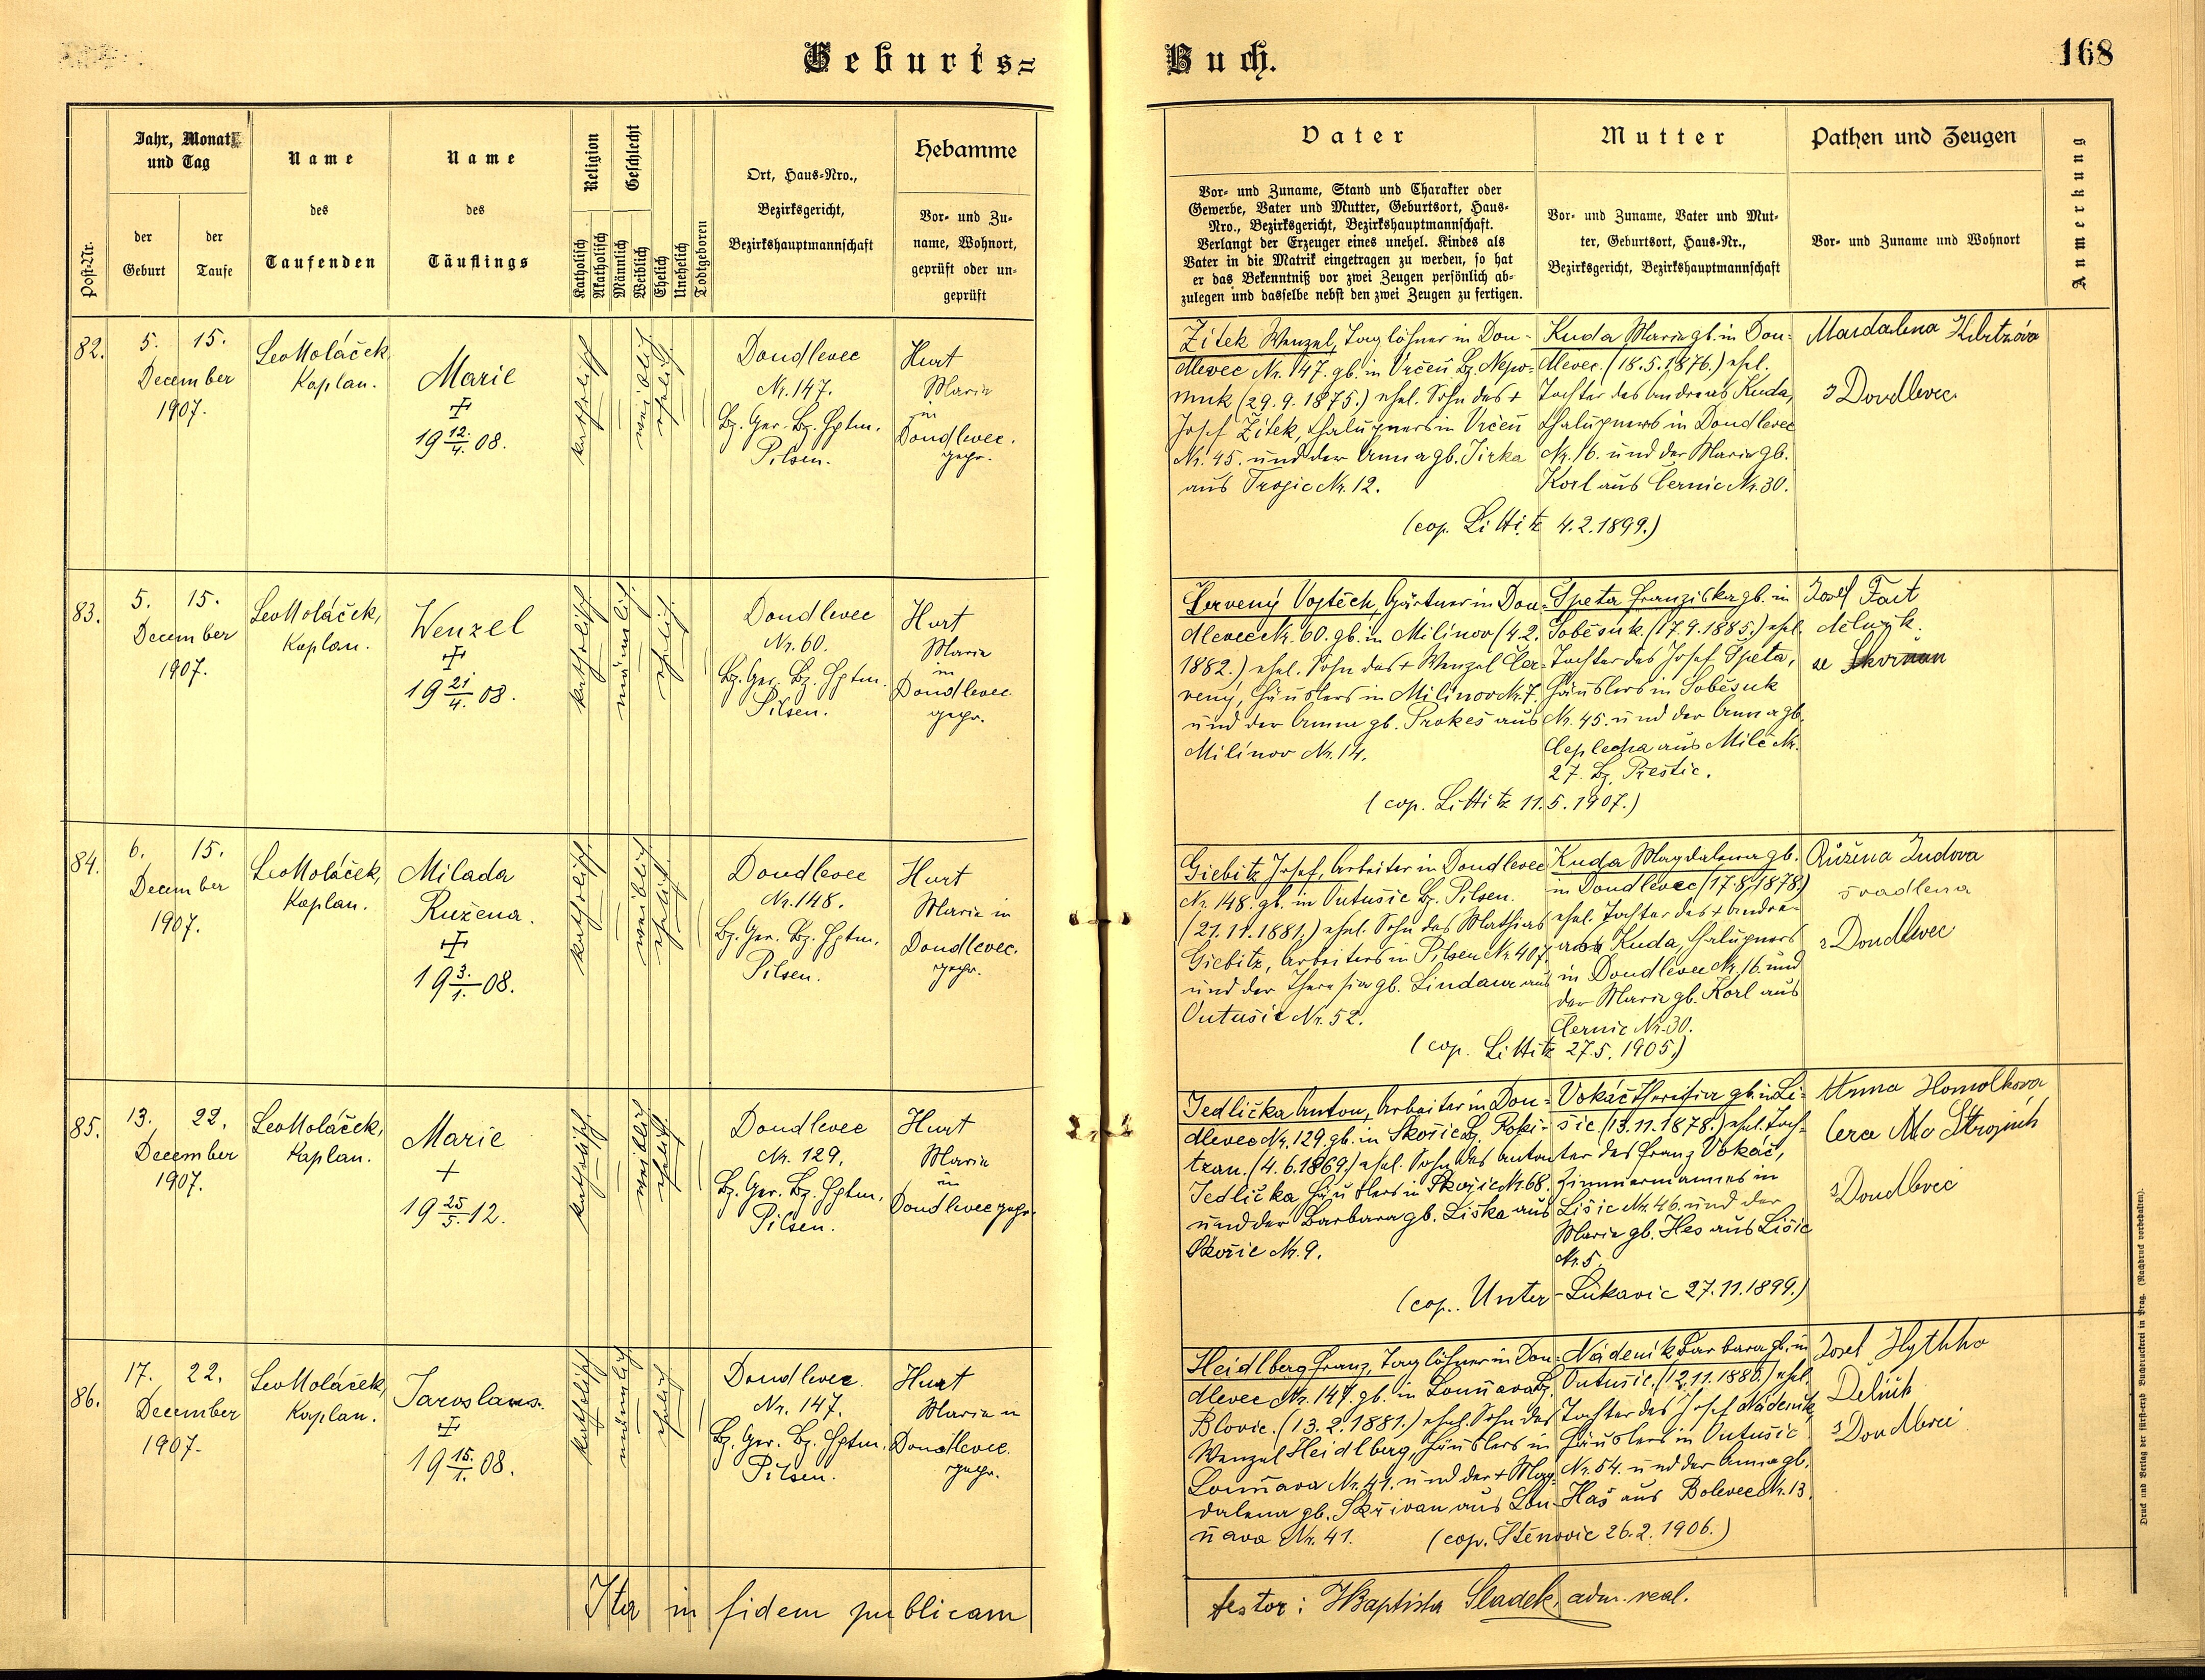 Geburts=
Buch.
168
Post-Nr.
Jahr, Monat
und Tag
der
Geburt
der
Taufe
Name
des
Taufenden
Name
des
Täuflings
Religion
Katholisch
Akatholisch
Geschlecht
Männlich
Weiblich
Ehelich
Unehelich
Todtgeboren
Ort, Haus-Nro.,
Bezirksgericht,
Bezirkshauptmannschaft
Hebamme
Vor- und Zu-
name, Wohnort,
geprüft oder un-
geprüft
Vater
Vor- und Zuname, Stand und Charakter oder
Gewerbe, Vater und Mutter, Geburtsort, Haus-
Nro., Bezirksgericht, Bezirkshauptmannschaft.
Verlangt der Erzeuger eines unehel. Kindes als
Vater in die Matrik eingetragen zu werden, so hat
er das Bekenntniß vor zwei Zeugen persönlich ab-
zulegen und dasselbe nebst den zwei Zeugen zu fertigen.
Mutter
Vor- und Zuname, Vater und Mut-
ter, Geburtsort, Haus-Nr.,
Bezirksgericht, Bezirkshauptmannschaft
Pathen und Zeugen
Vor- und Zuname und Wohnort
Anmerkung
82.
5. 15.
December
1907.
Leo Moláček,
Kaplan.
Marie
19 12/4. 08.
katholisch
weiblich
ehelich
Doudlevec
Nr. 147.
Bz. Ger. Bz. Hptm.
Pilsen.
Hurt
Marie
in
Doudlevec.
gepr.
Žitek Wenzel, Taglöhner in Dou-
dlevec Nr. 147. gb. in Vrčeň Bz. Nepo-
muk (29.9.1875.) ehel. Sohn des +
Josef Žitek, Chalupners in Vrčeň
Nr. 45. und der Anna gb. Jirka
aus Trojic Nr. 12.
Kuda Maria gb. in Dou-
dlevec (18.5.1876.) ehel.
Tochter des Andreas Kuda,
Chalupners in Doudlevec
Nr. 16. und der Maria gb.
Korl aus Černic Nr. 30.
(cop. Littitz 4.2.1899.)
z Doudlevec
83.
5. 15.
December
1907.
Leo Moláček,
Kaplan.
Wenzel
19 21/4. 08.
katholisch
männlich
ehelich
Doudlevec
Nr. 60.
Bz. Ger. Bz. Hptm.
Pilsen.
Hurt
Marie
in
Doudlevec.
gepr.
Červený Vojtěch, Gärtner in Dou-
dlevec Nr. 60. gb. in Milínov (4.2.
1882.) ehel. Sohn des + Wenzel Čer-
vený, Häuslers in Milínov Nr. 7.
und der Anna gb. Prokeš aus
Milínov Nr. 14.
Špeta Franziska gb. in
Soběsuk. (17.9.1885.) ehel.
Tochter des Josef Špeta,
Häuslers in Soběsuk
Nr. 45. und der Anna gb.
Ceplecha aus Mileč Nr.
27. Bz. Přeštic.
(cop. Littitz 11.5.1907.)
Josef Fait
dělník
84.
6. 15.
December
1907.
Leo Moláček,
Kaplan.
Milada
Ružena.
19 3./1. 08.
katholisch
weiblich
ehelich
Doudlevec
Nr. 148.
Bz. Ger. Bz. Hptm.
Pilsen.
Hurt
Marie in
Doudlevec.
gepr.
Giebitz Josef, Arbeiter in Doudlevec
Nr. 148. gb. in Outušic Bz. Pilsen.
(21.11.1881.) ehel. Sohn des Mathias
Giebitz, Arbeiters in Pilsen Nr. 407.
und der Theresia gb. Lindaur aus
Outušic Nr. 52.
Kuda Magdalena gb.
in Doudlevec (17.8.1878.)
ehel. Tochter des + Andre-
as Kuda, Chalupners
in Doudlevec Nr. 16. und
der Maria gb. Korl aus
Černic Nr. 30.
(cop. Littitz 27.5.1905.)
Růžena Judova
švadlena
z Doudlevec
85.
13. 22.
December
1907.
Leo Moláček,
Kaplan.
Marie
+
19 25/5. 12.
katholisch
weiblich
ehelich
Doudlevec
Nr. 129.
Bz. Ger. Bz. Hptm.
Pilsen.
Hurt
Marie
in
Doudlevec gepr.
Jedlička Anton, Arbeiter in Dou-
dlevec Nr. 129. gb. in Skořic Bz. Roki-
tzan. (4.6.1869.) ehel. Sohn des Anton
Jedlička Häuslers in Skořic Nr. 68.
und der Barbara gb. Liška aus
Skořic Nr. 9.
Vokáč Theresia gb. in Li-
šic (13.11.1878.) ehel. Toch-
ter des Franz Vokáč,
Zimmermannes in
Lišic Nr. 46. und der
Maria gb. Hes aus Lišic
Nr. 5.
(cop. Unter-Lukavic 27.11.1899.)
Anna Homolkova
z Doudlevic
86.
17. 22.
December
1907.
Leo Moláček,
Kaplan.
Jaroslaus.
19 15./1. 08.
katholisch
männlich
ehelich
Doudlevec.
Nr. 147.
Bz. Ger. Bz. Hptm.
Pilsen.
Hurt
Marie in
Doudlevec.
gepr.
Heidlberg Franz, Taglöhner in Dou-
dlevec Nr. 147. gb. in Louňava Bz.
Blovic. (13.2.1881.) ehel. Sohn des
Wenzel Heidlberg, Häuslers in
Louňava Nr. 41. und der + Mag-
dalena gb. Skřivan aus Lou-
ňava Nr. 41.
Nádeník Barbara gb. in
Outušic. (12.11.1886.) ehel.
Tochter des Josef Nádeník,
Häuslers in Outušic
Nr. 54. und der Anna gb.
Haš aus Bolevec Nr. 13.
(cop. Štěnovic 26.2.1906.)
Josef
Dělník
z Doudlevci
Ita in fidem publicam
testor: J Baptista Sladek, adm. real.
Druck und Verlag der fürst-erzb. Buchdruckerei in Prag. (Nachdruck vorbehalten).